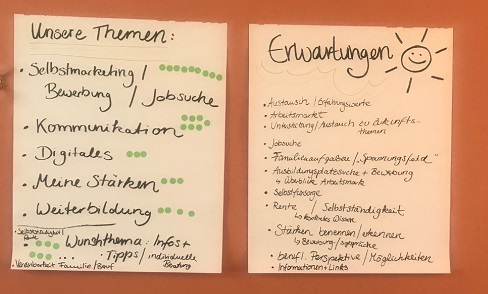 Unsere Themen:
• Selbstmarketing /
Bewerbung / Jobsuche
• Kommunikation
• Digitales
• Meine Stärken
• Weiterbildung
Selbständigkeit/
Rente
• Wunschthema: Infos +
... Tipps / individuelle
Beratung
• Vereinbarkeit Familie/Beruf
Erwartungen
• Austausch / Erfahrungswerte
• Arbeitsmarkt
• Unterstützung / Austausch zu Zukunfts-
themen
• Jobsuche
• Familienaufgaben / "Spannungsfeld"
• Ausbildungsplatzsuche + Bewerbung
↳ Überblick Arbeitsmarkt
• Selbstfürsorge
• Rente / Selbstständigkeit
↳ konkretes Wissen
• Stärken benennen / erkennen
↳ Bewerbung / -gespräche
• berufl. Perspektive / Möglichkeiten
• Informationen + Links